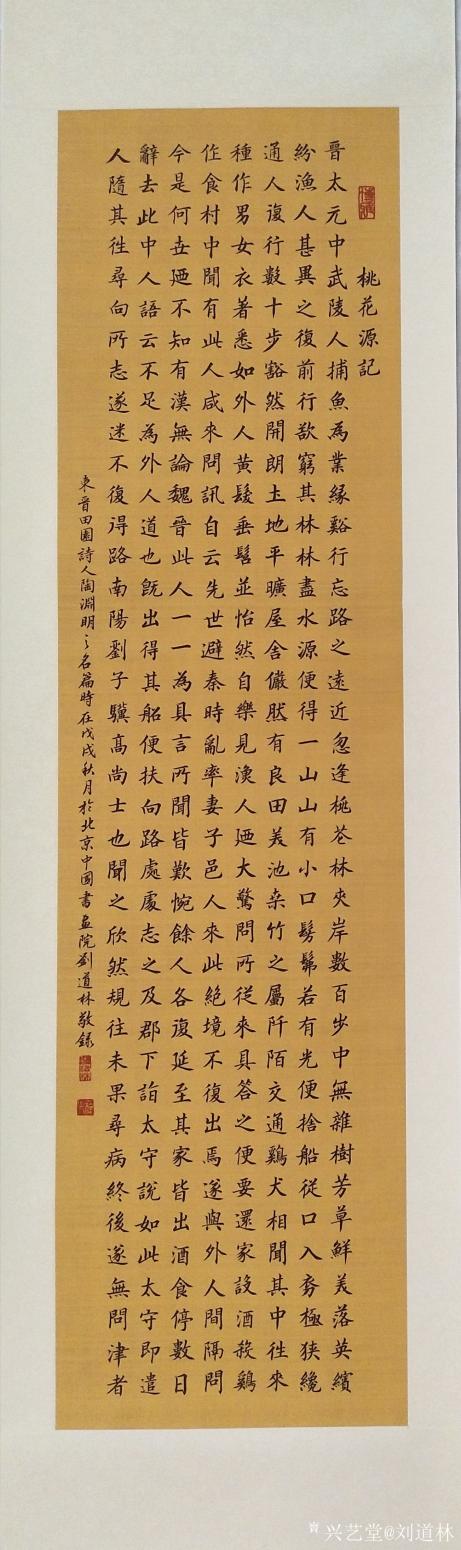 桃花源記
晉太元中武陵人捕魚為業緣谿行忘路之遠近忽逢桃花林夾岸數百步中無雜樹芳草鮮美落英繽
紛漁人甚異之復前行欲窮其林林盡水源便得一山山有小口髣髴若有光便捨船從口入初極狹纔
通人復行數十步豁然開朗土地平曠屋舍儼然有良田美池桑竹之屬阡陌交通鷄犬相聞其中往來
種作男女衣著悉如外人黃髮垂髫並怡然自樂見漁人廼大驚問所從來具答之便要還家設酒殺鷄
作食村中聞有此人咸來問訊自云先世避秦時亂率妻子邑人來此絕境不復出焉遂與外人間隔問
今是何世廼不知有漢無論魏晉此人一一為具言所聞皆歎惋餘人各復延至其家皆出酒食停數日
辭去此中人語云不足為外人道也既出得其船便扶向路處處志之及郡下詣太守說如此太守即遣
人隨其往尋向所志遂迷不復得路南陽劉子驥高尚士也聞之欣然規往未果尋病終後遂無問津者
東晉田園詩人陶淵明之名篇時在戊戌秋月於北京中國書畫院劉道林敬錄
兴艺堂@刘道林